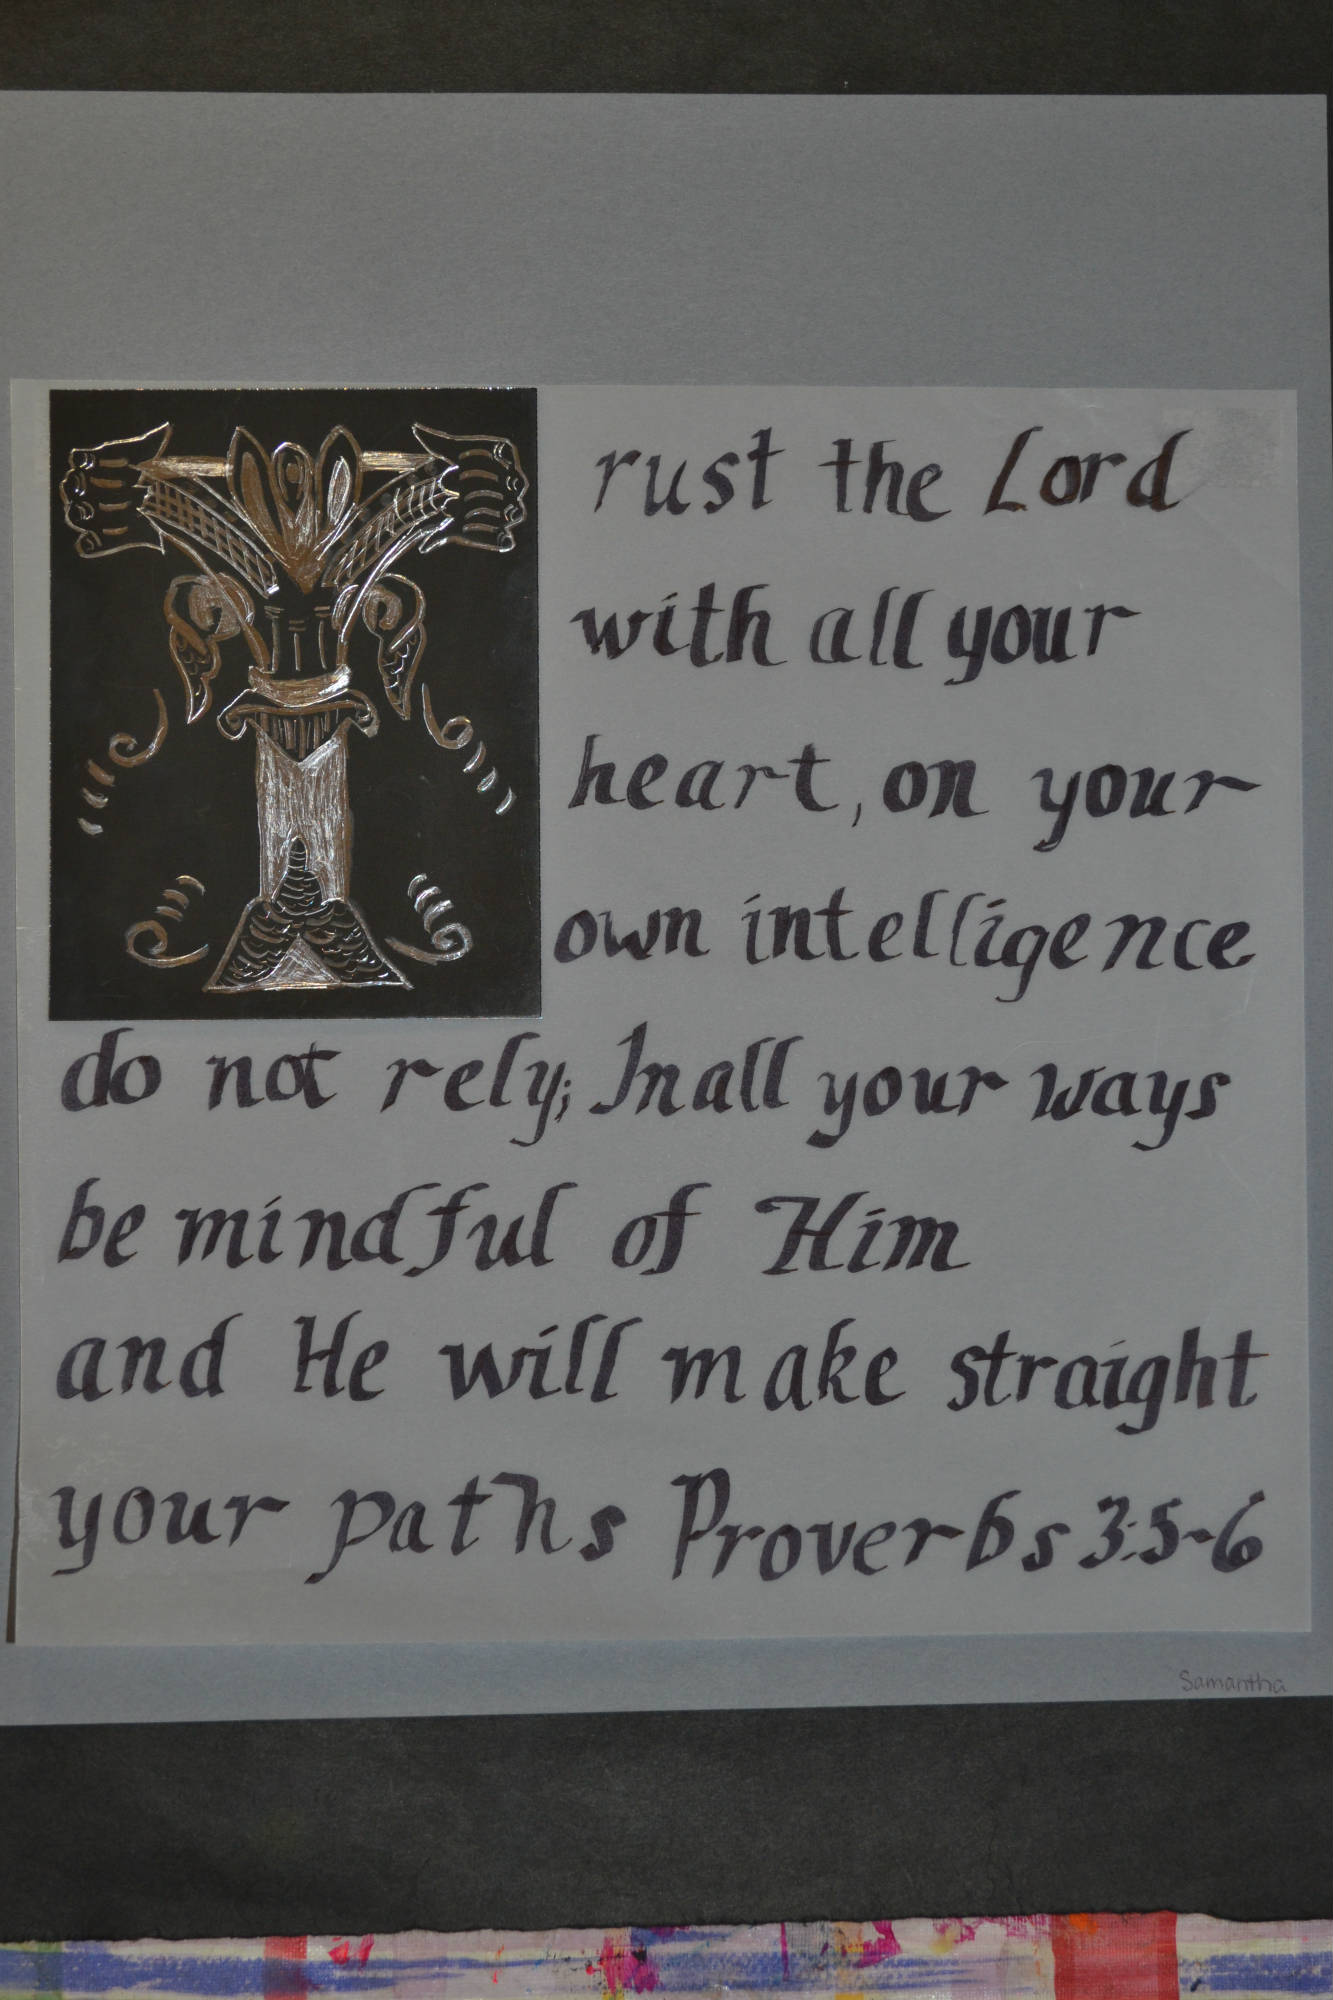 Trust the Lord
with all your
heart, on your
own intelligence
do not rely; In all your ways
be mindful of Him
and He will make straight
your paths Proverbs 3:5-6
Samantha